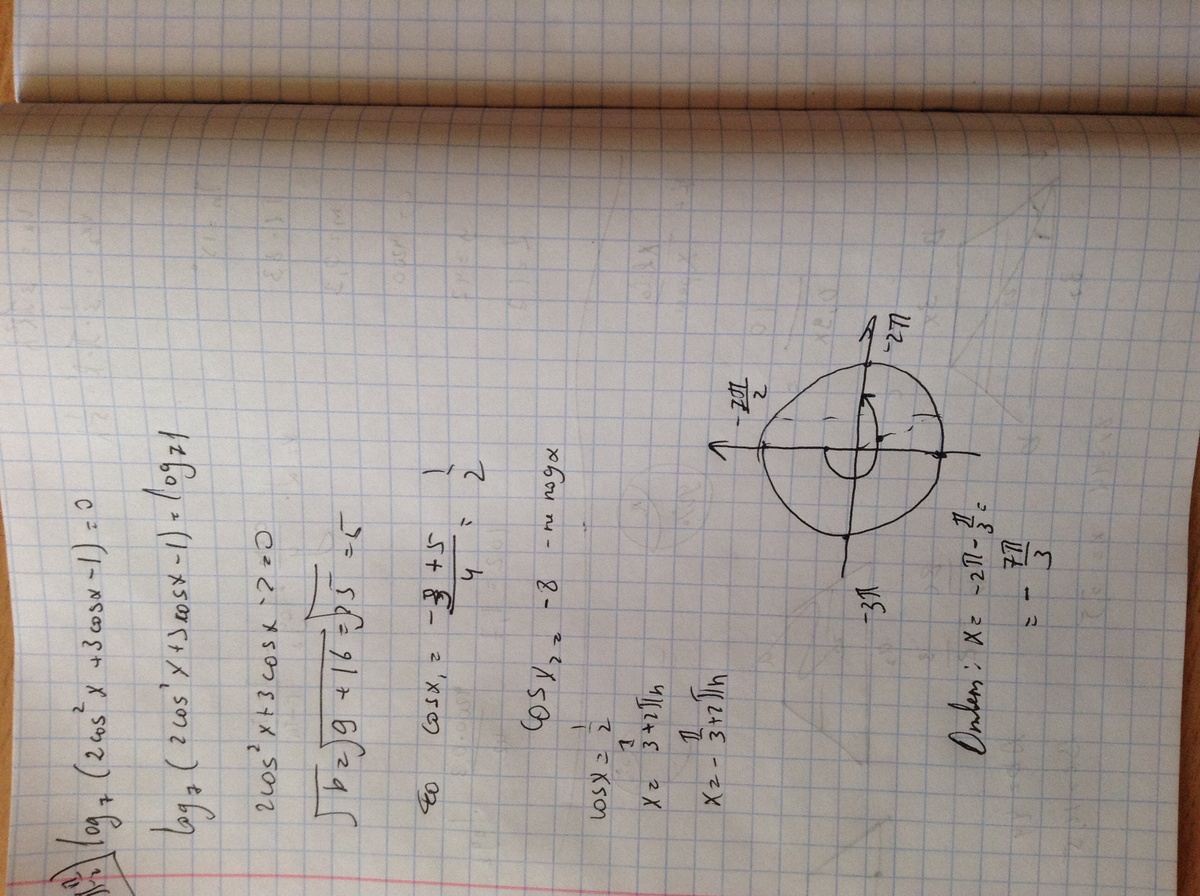 log₇(2cos²x+3cosx-1)=0
log₇(2cos²x+3cosx-1)=log₇1
2cos²x+3cosx-2=0
√D=√9+16=√25=5
cosx₁=-3+5/4=1/2
cosx₂=-8 -не подх
cosx=1/2
x=π/3+2πn
x=-π/3+2πn
-7π/2
-2π
-3π
Ответ: x=-2π-π/3=
=-7π/3